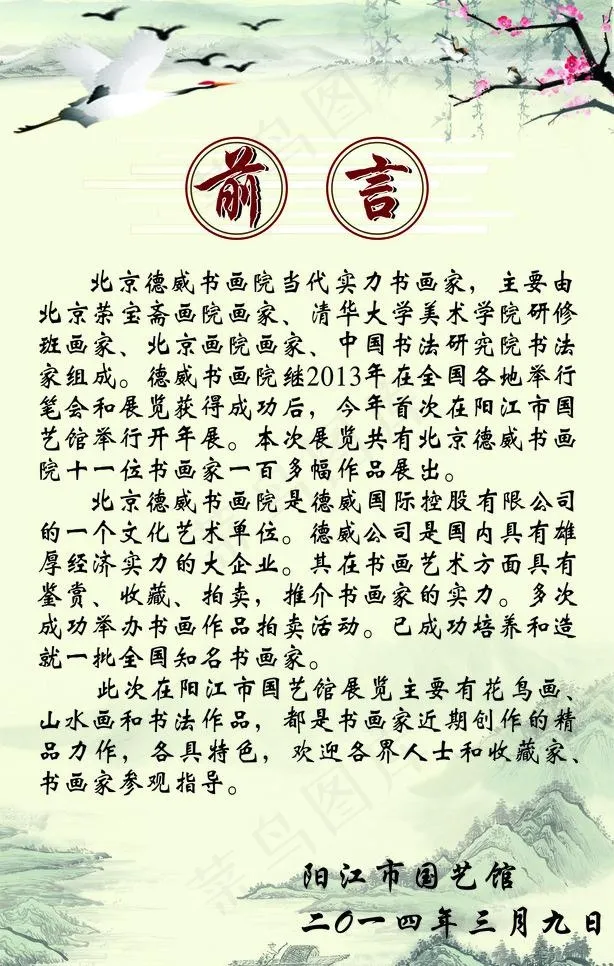 前言
北京德威书画院当代实力书画家，主要由
北京荣宝斋画院画家、清华大学美术学院研修
班画家、北京画院画家、中国书法研究院书法
家组成。德威书画院继2013年在全国各地举行
笔会和展览获得成功后，今年首次在阳江市国
艺馆举行开年展。本次展览共有北京德威书画
院十一位书画家一百多幅作品展出。
北京德威书画院是德威国际控股有限公司
的一个文化艺术单位。德威公司是国内具有雄
厚经济实力的大企业。其在书画艺术方面具有
鉴赏、收藏、拍卖，推介书画家的实力。多次
成功举办书画作品拍卖活动。已成功培养和造
就一批全国知名书画家。
此次在阳江市国艺馆展览主要有花鸟画、
山水画和书法作品，都是书画家近期创作的精
品力作，各具特色，欢迎各界人士和收藏家、
书画家参观指导。
阳江市国艺馆
二〇一四年三月九日